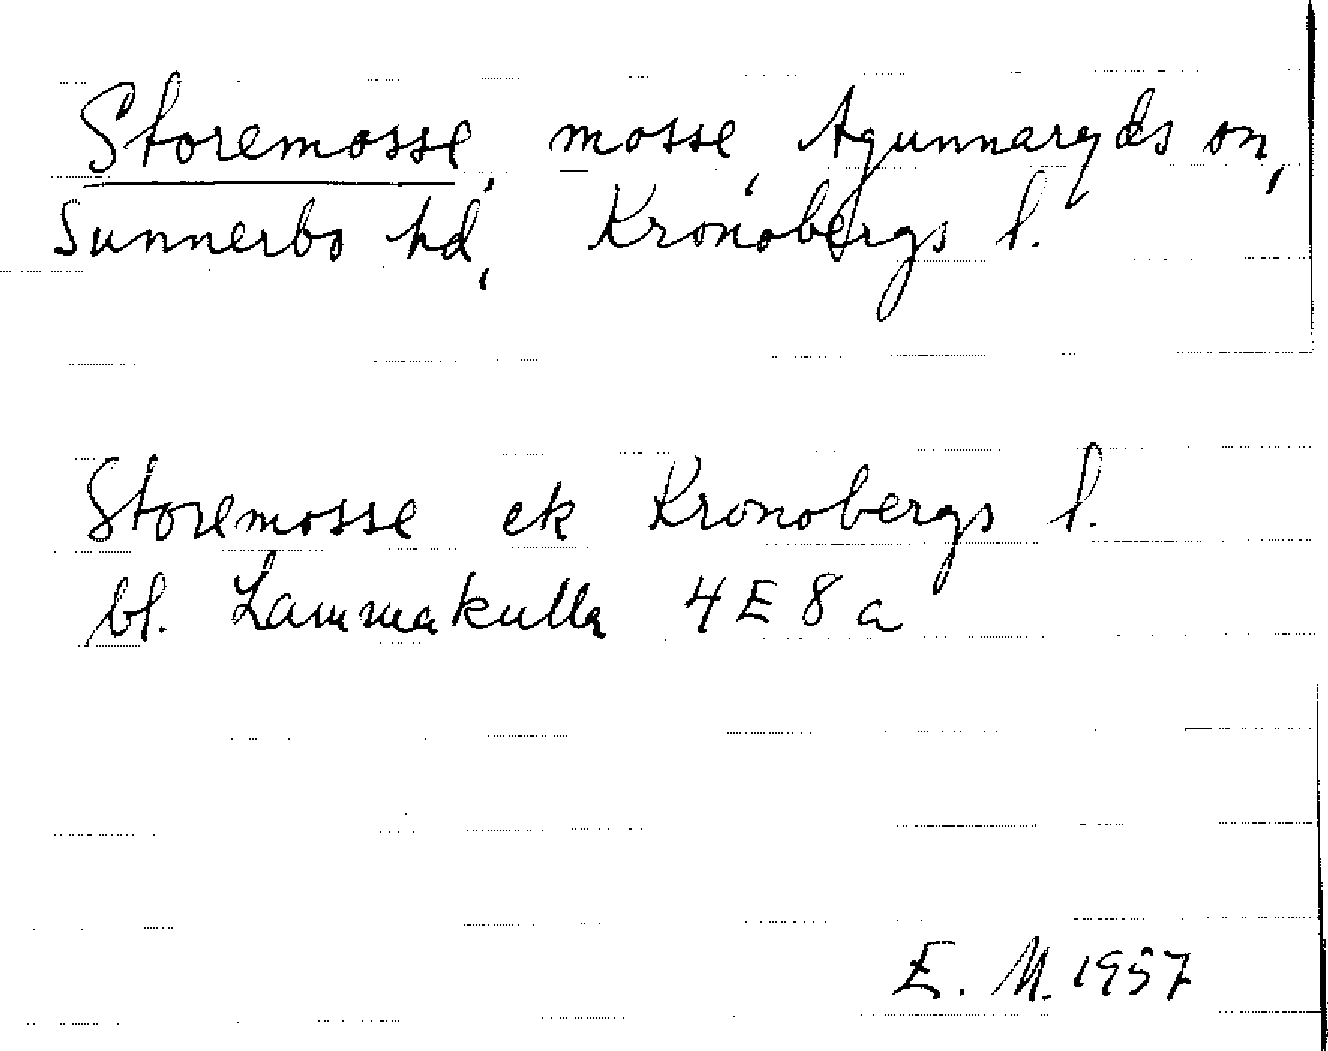 Storemosse, mosse, Agunnaryds sn,
Sunnerbo hd, Kronobergs l.
Storemosse ek Kronobergs l.
bl. Lammakulla 4E8a
E. M. 1957